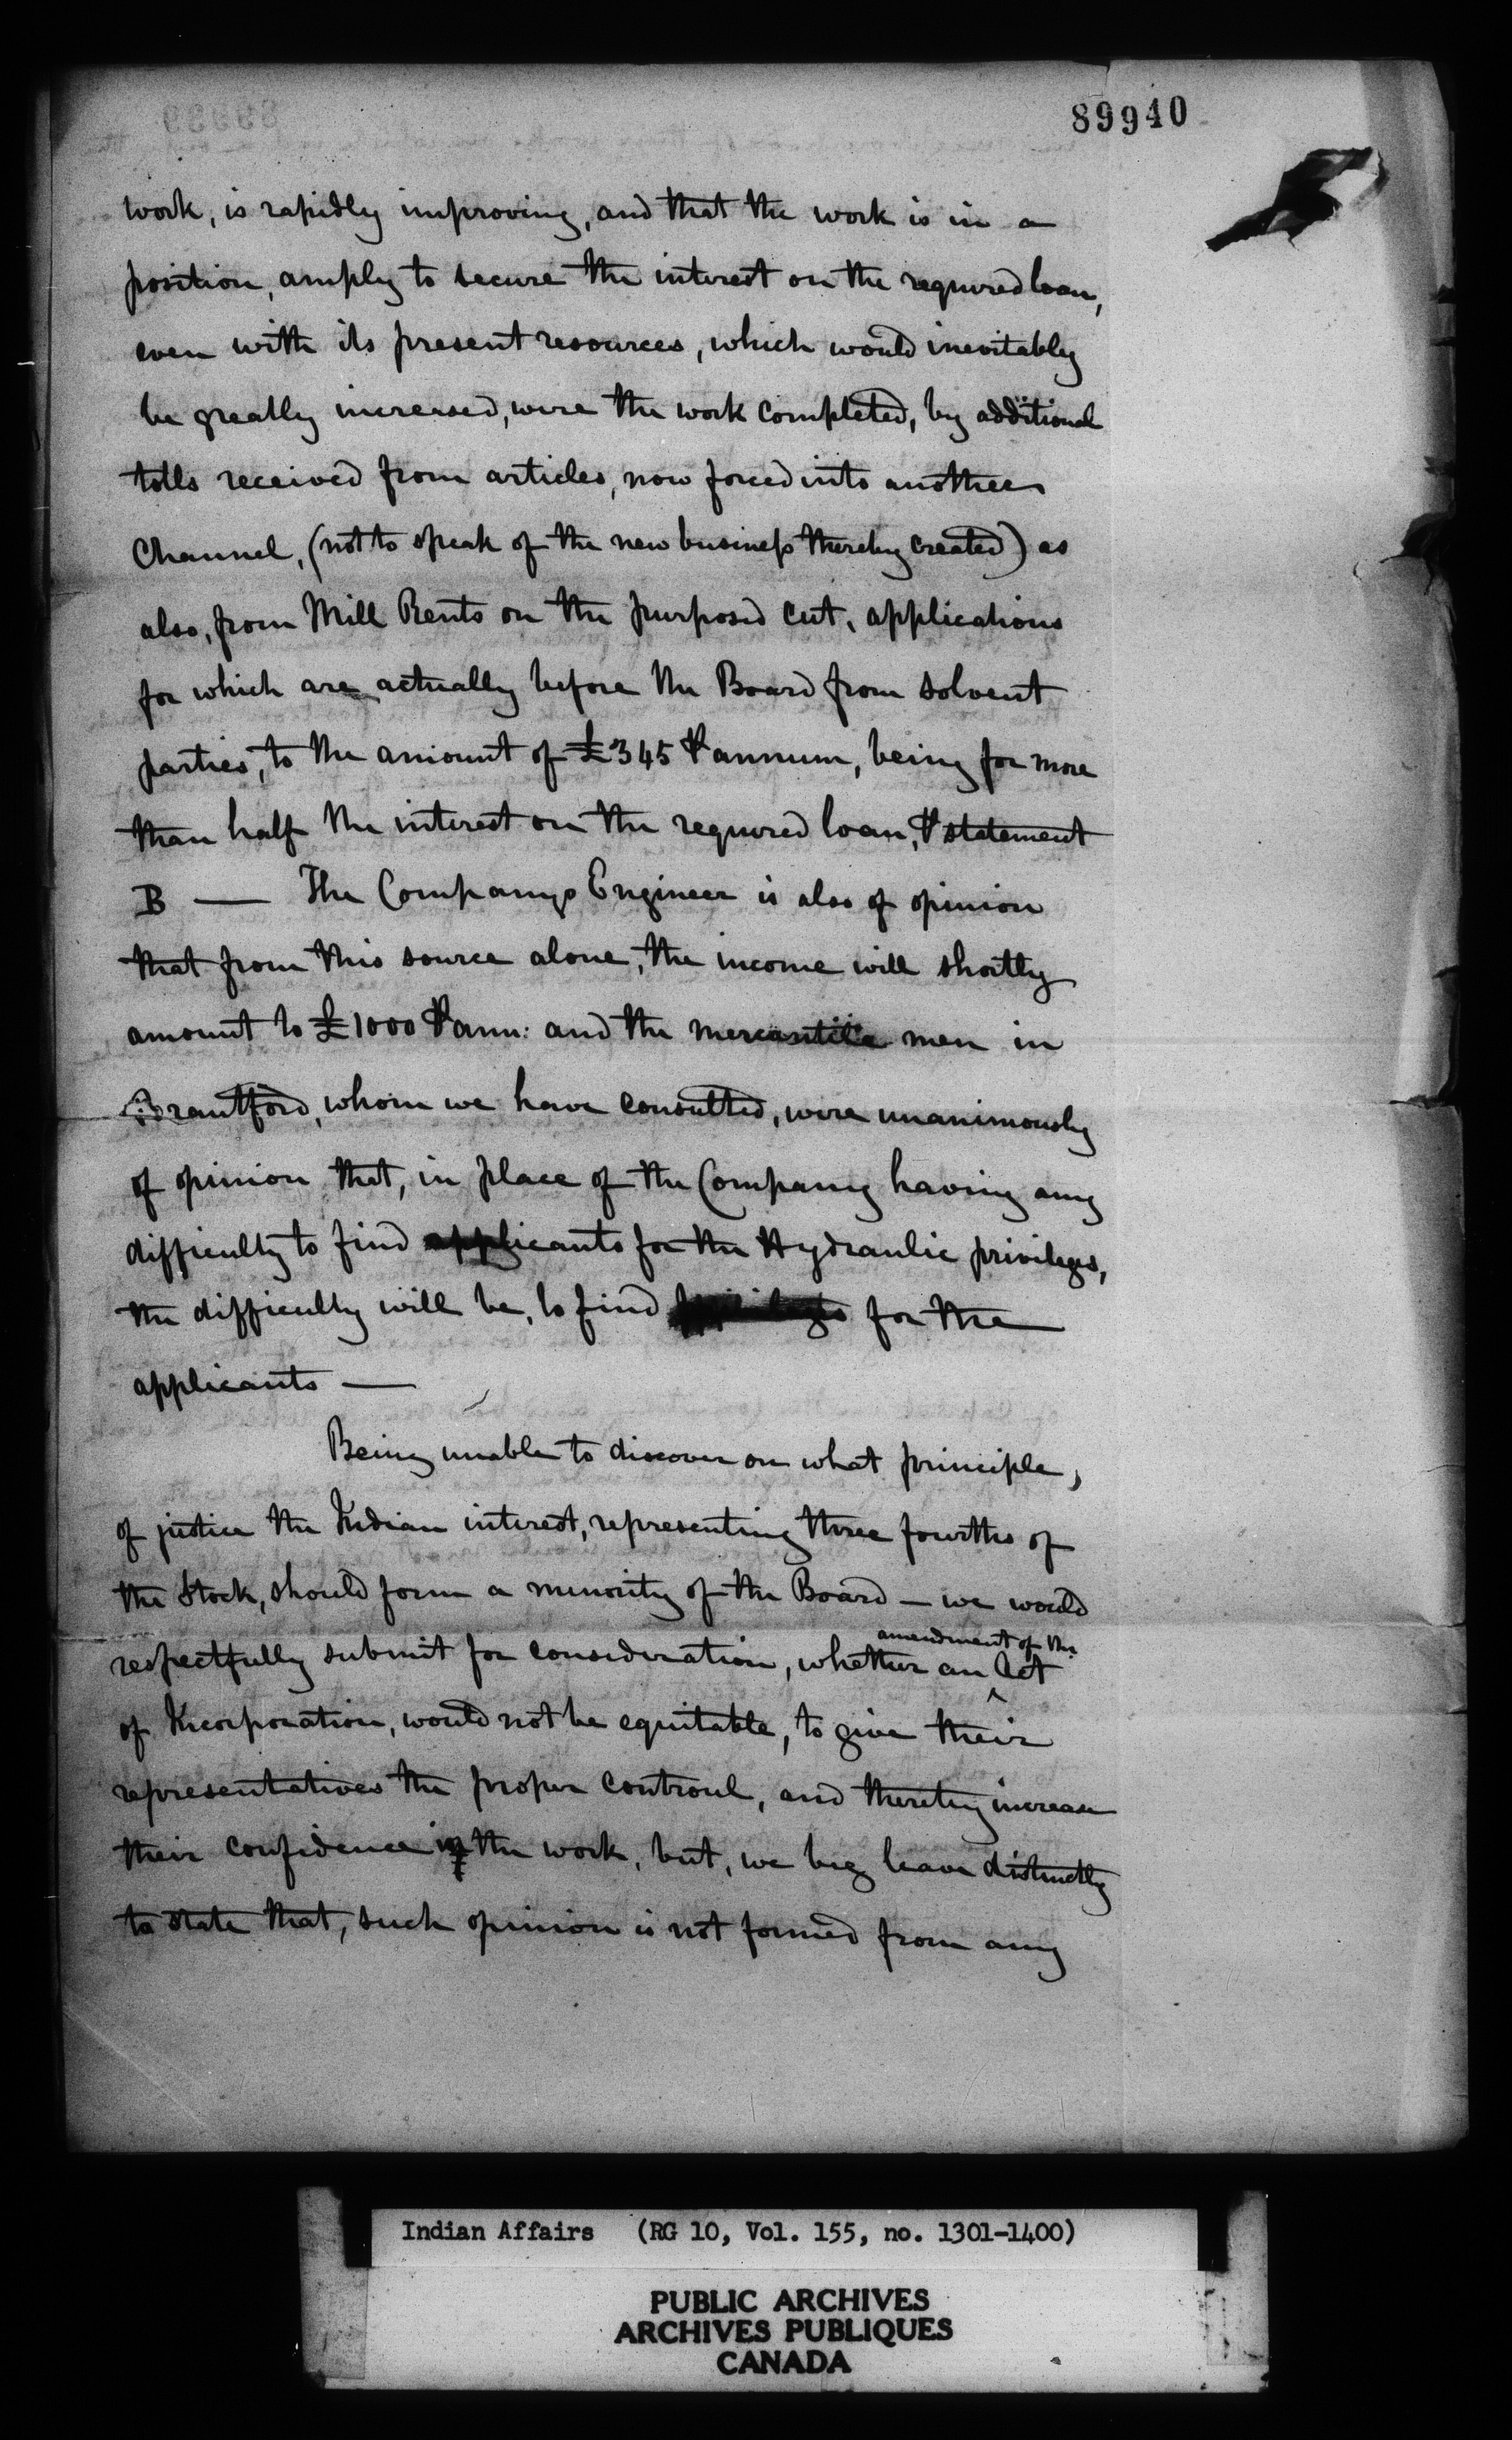 89940
work, is rapidly improving, and that the work is in a
position, amply to secure the interest on the required loan,
even with its present resources, which would inevitably
be greatly increased, were the work completed, by additional
tolls received from articles, now forced into another
Channel, (not to speak of the new business thereby created) as
also, from Mill Rents on the purposed cut, applications
for which are actually before the Board from solvent
parties, to the amount of £345 ⅌ annum, being for more
than half the interest on the required loan, ⅌ statement
B — The Companys Engineer is also of opinion
that from this source alone, the income will shortly
amount to £1000 ⅌ ann: and the mercantile men in
Brantford, whom we have consulted, were unanimously
of opinion that, in place of the Company having any
difficulty to find applicants for the Hydraulic privileges,
the difficulty will be, to find privileges for the
applicants —
Being unable to discover on what principle,
of justice the Indian interest, representing three fourths of
the Stock, should form a minority of the Board — we would
amendment of the
respectfully submit for consideration, whether an Act
of Incorporation, would not be equitable, to give their
representatives the proper controul, and thereby increase
their confidence in the work, but, we beg leave distinctly
to state that, such opinion is not formed from any
Indian Affairs (RG 10, Vol. 155, no. 1301-1400)
PUBLIC ARCHIVES
ARCHIVES PUBLIQUES
CANADA